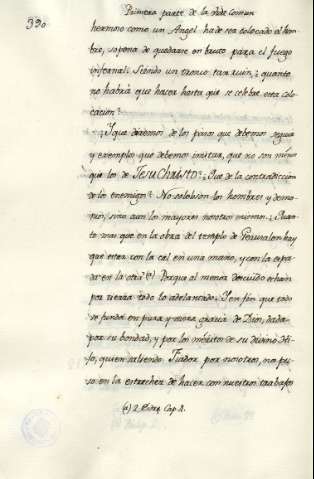 390
Primera parte de la Vida comun
hermoso como un Angel ha de ser colocado al hom-
bro, sopena de quedarse en bruto para el fuego
infernal: Siendo un tronco tan ruin, ¿quanto
no habrà que hacer hasta que se celebre esta colo-
cacion?
¿Y que diremos de los pasos que debemos seguir
y exemplos que debemos imitar, que no son menos
que los de Jesu Christo? ¿Que de la contradiccion
de los enemigos? No solo son los hombres y demo-
nios, sino aun lo mayores nosotros mismos. ¿Quan-
to mas que en la obra del templo de Jerusalen hay
que estar con la cal en una mano, y con la espa-
da en la otra? (a) Porque al menor descuido echan
por tierra todo lo adelantado. Y en fin que todo
se funda en pura y mera gracia de Dios, dada
por su bondad, y por los meritos de su divino Hi-
jo, quien saliendo Fiador por nosotros, no pu-
so en la estrechez de hacer con nuestros trabajos
(a) 2. Esdræ Cap. 4.